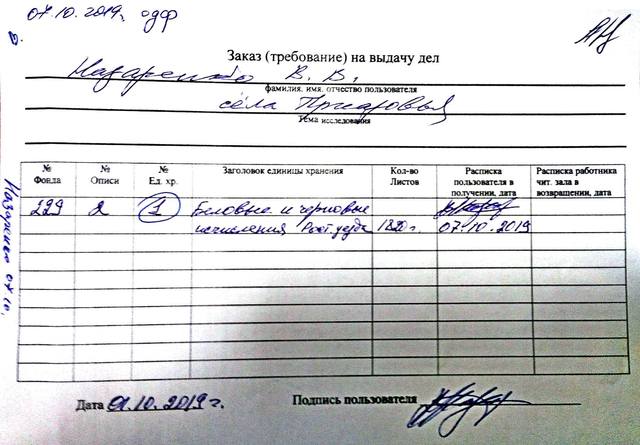 07.10.2019г. одф
Заказ (требование) на выдачу дел
Назаренко В. В.
фамилия, имя, отчество пользователя
сёла Приазовья
тема исследования
№ Фонда № Описи № Ед. хр. Заголовок единицы хранения Кол-во Листов Расписка пользователя в получении, дата Расписка работника чит. зала в возвращении, дата
229 2 1 Беловые и черновые
исчисления Рост. уезда 1820г. 07.10.2019
Назаренко 07.10.
Дата 01.10.2019г. Подпись пользователя